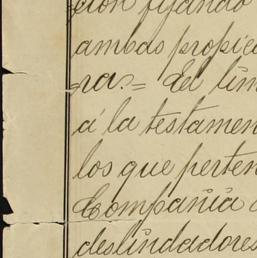 ción fijando
ambas propie
ra.= El lím
á la testamen
los que perten
Compañía
deslindadores